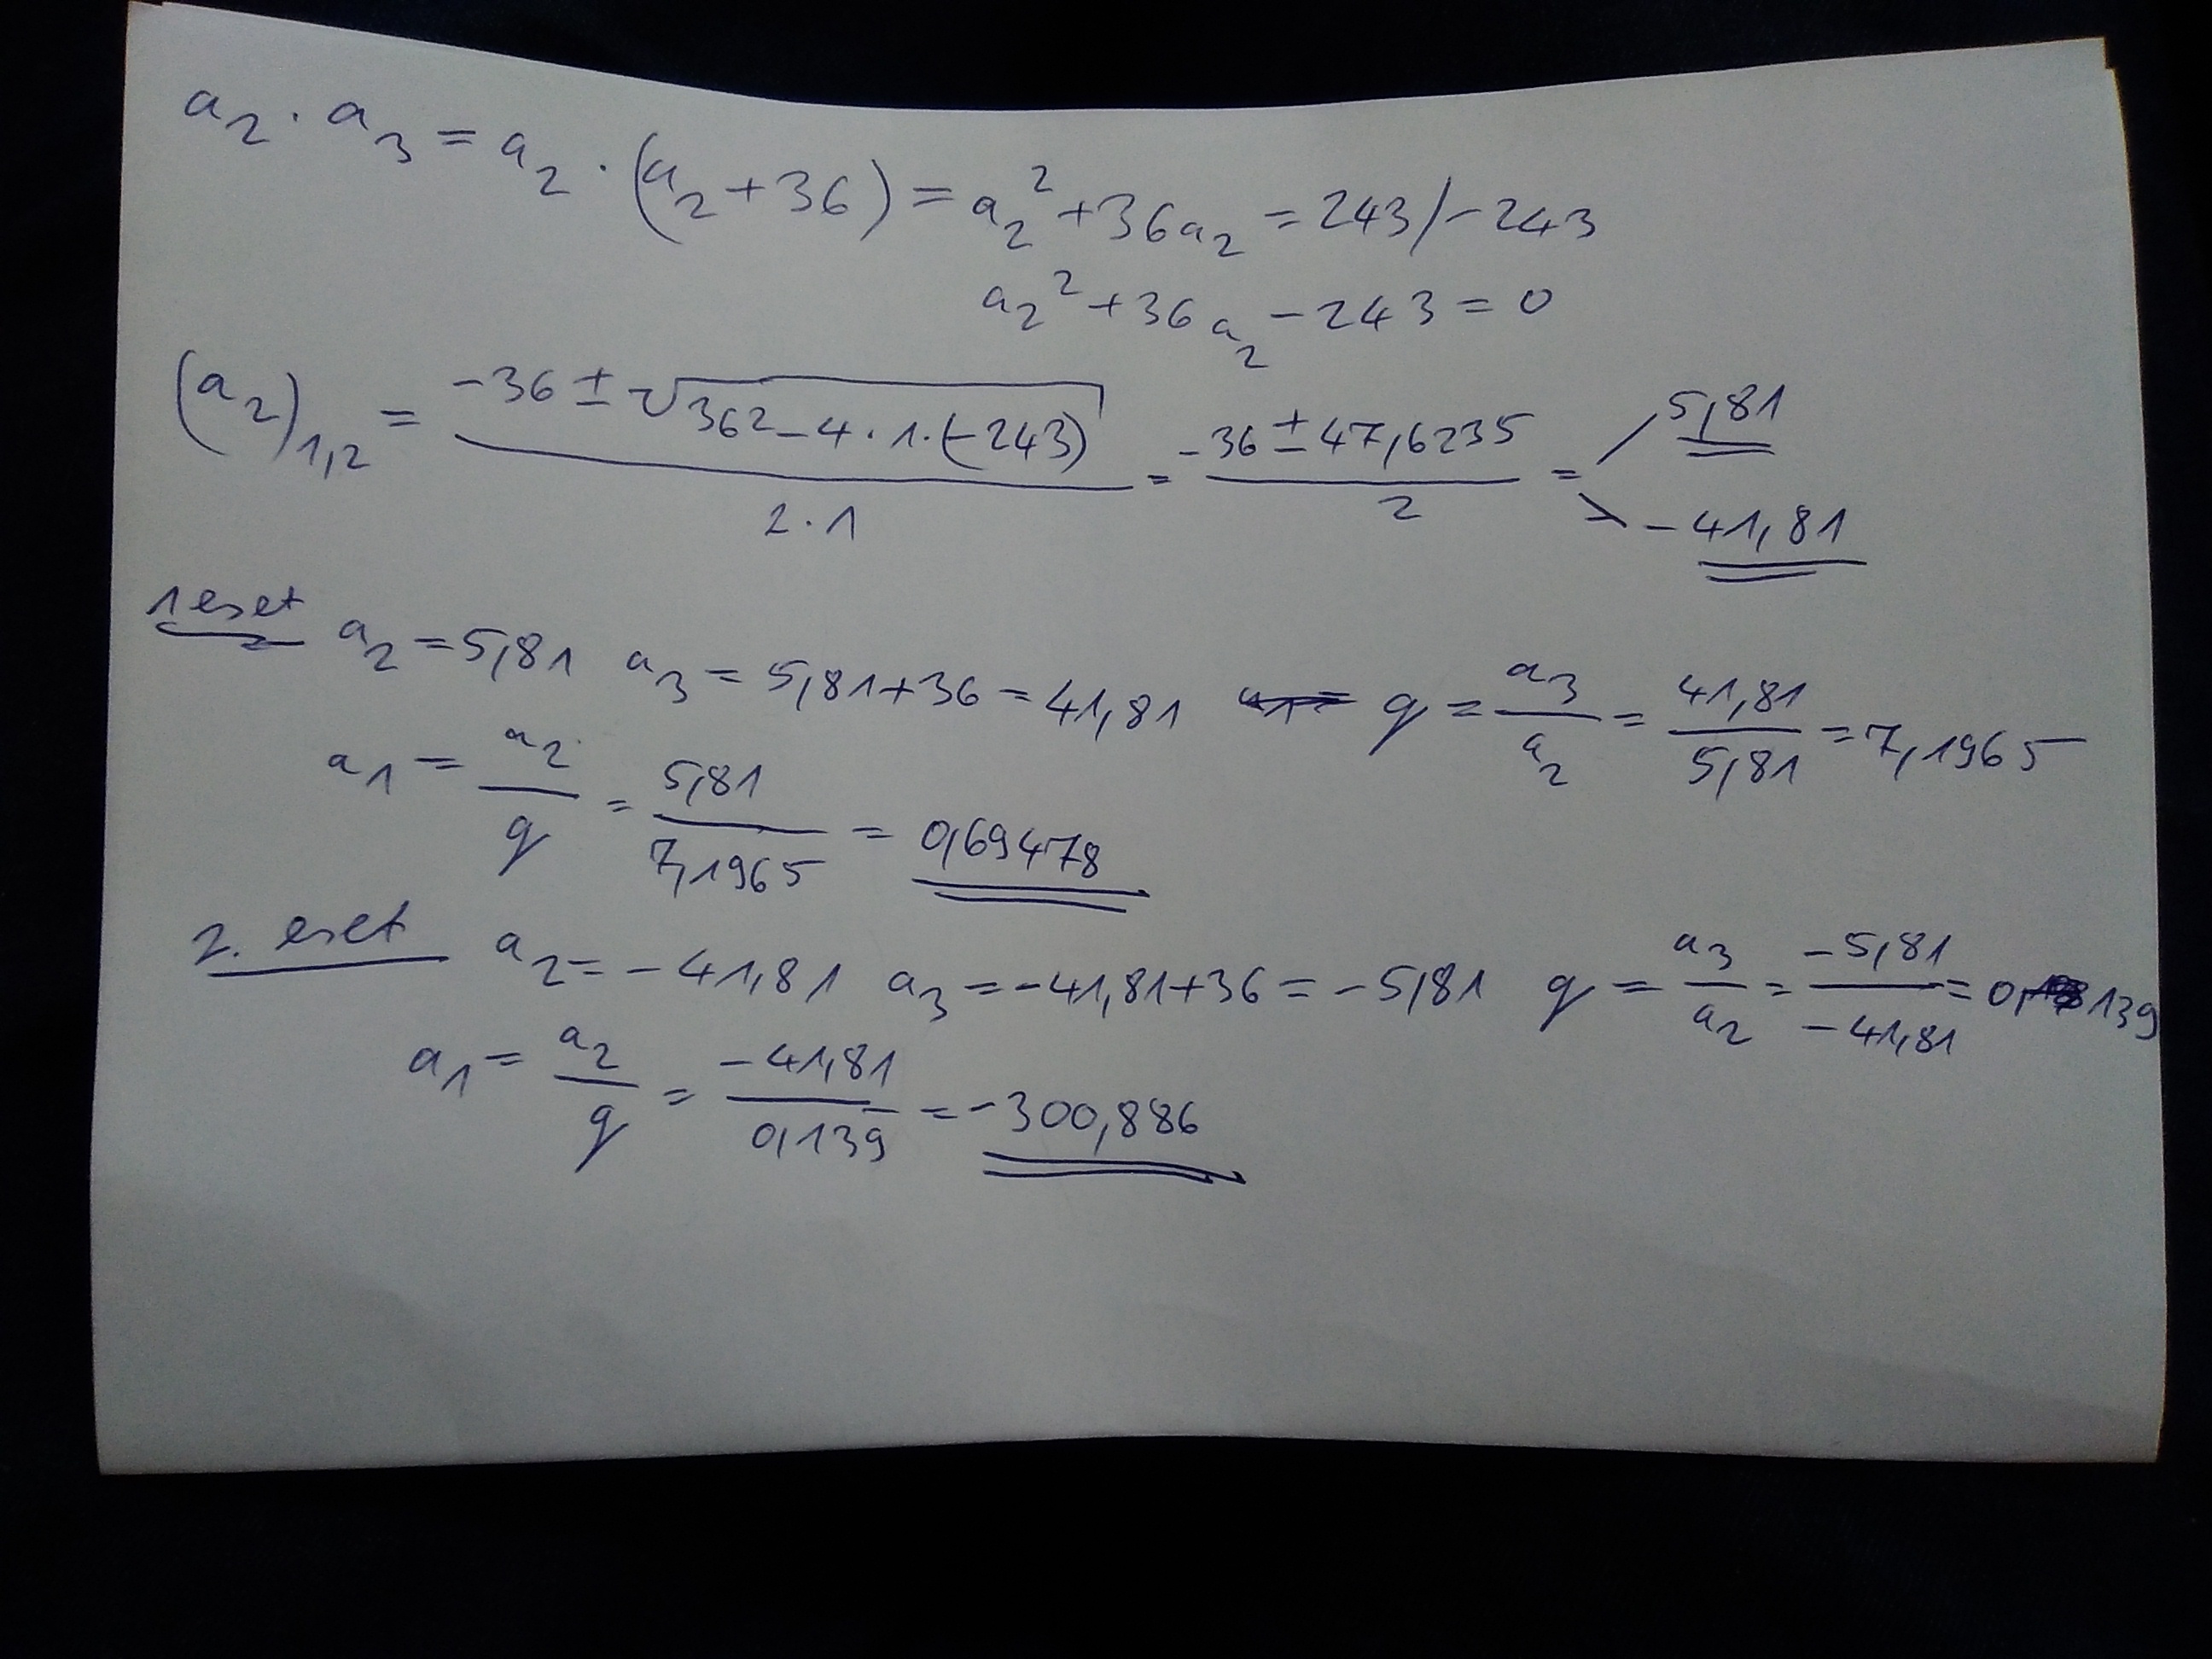 a₂ · a₃ = a₂ · (a₂ + 36) = a₂² + 36a₂ = 243 / - 243
a₂² + 36a₂ - 243 = 0
(a₂)₁,₂ = (-36 ± √(36² - 4 · 1 · (-243))) / (2 · 1) = (-36 ± 47,6235) / 2 = 5,81
-41,81
1 eset a₂ = 5,81 a₃ = 5,81 + 36 = 41,81 q = a₃ / a₂ = 41,81 / 5,81 = 7,1965
a₁ = a₂ / q = 5,81 / 7,1965 = 0,69478
2. eset a₂ = -41,81 a₃ = -41,81 + 36 = -5,81 q = a₃ / a₂ = -5,81 / -41,81 = 0,139
a₁ = a₂ / q = -41,81 / 0,139 = -300,886